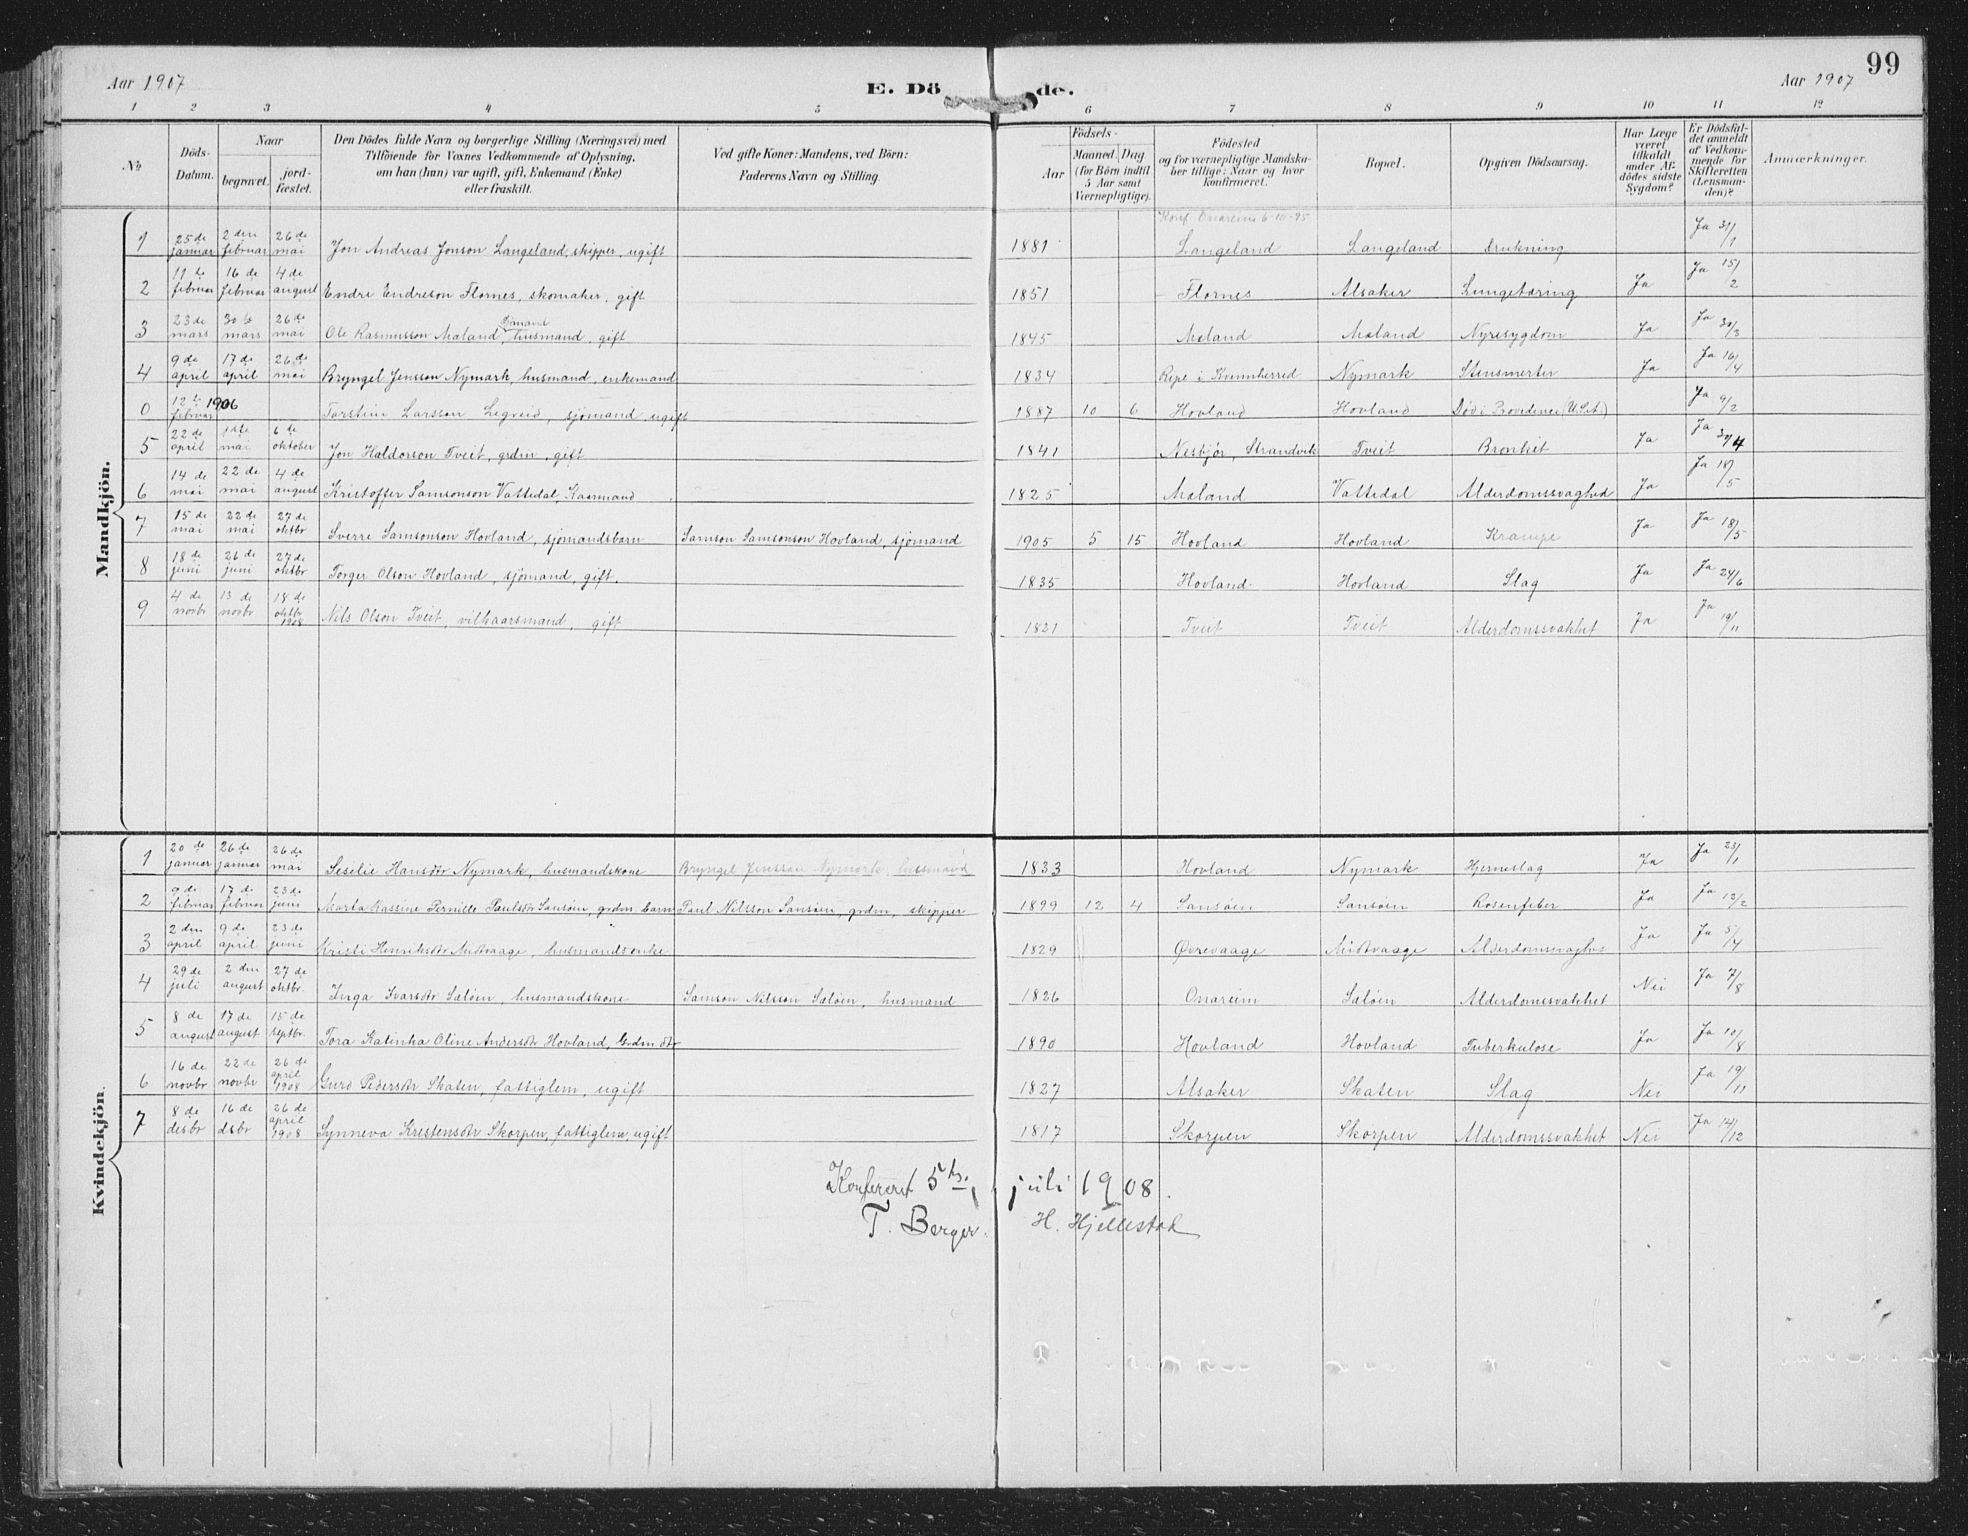 99
Aar 1907 E. Dö de. Aar 1907
1 2 3 4 5 6 7 8 9 10 11 12
No
Döds-Datum.
Naar
begravet.
jord-fæstet.
Den Dödes fulde Navn og borgerlige Stilling (Næringsvei) med
Tilföiende for Voxnes Vedkommende af Oplysning,
om han (hun) var ugift, gift, Enkemand (Enke)
eller fraskilt.
Ved gifte Koner: Mandens, ved Börn:
Faderens Navn og Stilling.
Födsels-
Aar
Maaned. Dag.
(for Börn indtil
5 Aar samt
Værnepligtige).
Födested
og for værnepligtige Mandska-
ber tillige: Naar og hvor
konfirmeret.
Bopæl.
Opgiven Dödsaarsag.
Har Læge
været
tilkaldt
under Af-
dödes sidste
Sygdom?
Er Dödsfal-
det anmeldt
af Vedkom-
mende for
Skifteretten
(Lensman-
den)?
Anmærkninger.
Mandkjön.
Konf. Onareim 6-10-95
1 25de januar 2den februar 26de mai Jon Andreas Jonson Langeland, skipper, ugift 1881 Langeland Langeland Drukning Ja 31/1
2 11te februar 16de februar 4de august Endre Endreson Flornes, skomaker, gift 1851 Flornes Alsaker Lungetæring Ja Ja 15/2
3 23de mars 30te mars 26de mai Ole Rasmusson Maland, husmand, gift 1845 Maland Maland Nyresygdom Ja Ja 30/3
4 9de april 17de april 26de mai Bryngel Jensson Nymark, husmand, enkemand 1834 Ripe i Kvinnherred Nymark Stensmerter Ja Ja 16/4
0 12te februar 1906 Torstein Larsson Legreid, sjömand, ugift 1887 10 6 Hovland Hovland Död i Providence (U.S.A.) Ja 9/2
5 22de april mai 6te oktober Jon Haldorson Tveit, grdm., gift 1841 Nesbjör, Strandvik Tveit Bronkit Ja Ja 30/4
6 14de mai 22de mai 4de august Kristoffer Samsonson Vattedal Kaarmand 1825 Maland Vattedal Alderdomssvaghed Ja Ja 18/5
7 15de mai 22de mai 27de oktbr Sverre Samsonson Hovland, sjömandsbarn Samson Samsonson Hovland, sjömand 1905 5 15 Hovland Hovland Krampe Ja Ja 18/5
8 18de juni 26de juni 27de oktbr Torger Olson Hovland, sjömand, gift. 1835 Hovland Hovland Slag Ja Ja 24/6
9 4de novbr 13de novbr 18de oktbr 1908 Nils Olson Tveit, vilkaarsmand, gift 1821 Tveit Tveit Alderdomssvakhet Ja Ja 19/11
Kvindekjön.
1 20de januar 26de januar 26de mai Seselie Hansdtr Nymark, husmandskone Bryngel Jensson Nymark, husmand 1833 Hovland Nymark Hjerneslag Ja Ja 23/1
2 9de februar 17de februar 23de juni Marta Kassine Pernille Paulsdtr Sansöen, grdm. barn Paul Nilsson Sansöen, grdm, skipper 1899 12 4 Sansöen Sansöen Rosenfeber Ja Ja 12/2
3 2den april 9de april 23de juni Kristi Henriksdtr Midtvaage, husmandsenke 1829 Øvrevaage Midtvaage Ja Ja 5/4
4 29de juli 2den august 27de oktbr. Inga Ivarsdtr Salöen, husmandskone Samson Nilsson Salöen, husmand 1826 Onareim Salöen Alderdomssvakhet Nei Ja 7/8
5 8de august 17de august 15de septbr. Tora Katinka Oline Andersdtr Hovland, Grdm. dtr 1890 Hovland Hovland Tuberkulose Ja Ja 10/8
6 16de novbr 22de novbr 26de april 1908 Guro Pedersdtr Skaten, fattiglem, ugift 1827 Alsaker Skaten Slag Nei Ja 19/11
7 8de desbr 16de dsbr 26de april 1908 Synneva Kristensdtr Skorpen, fattiglem, ugift 1817 Skorpen Skorpen Alderdomssvakhet Nei Ja 14/12
Konfereret 5te juli 1908.
T. Berger. H. Hjellestad